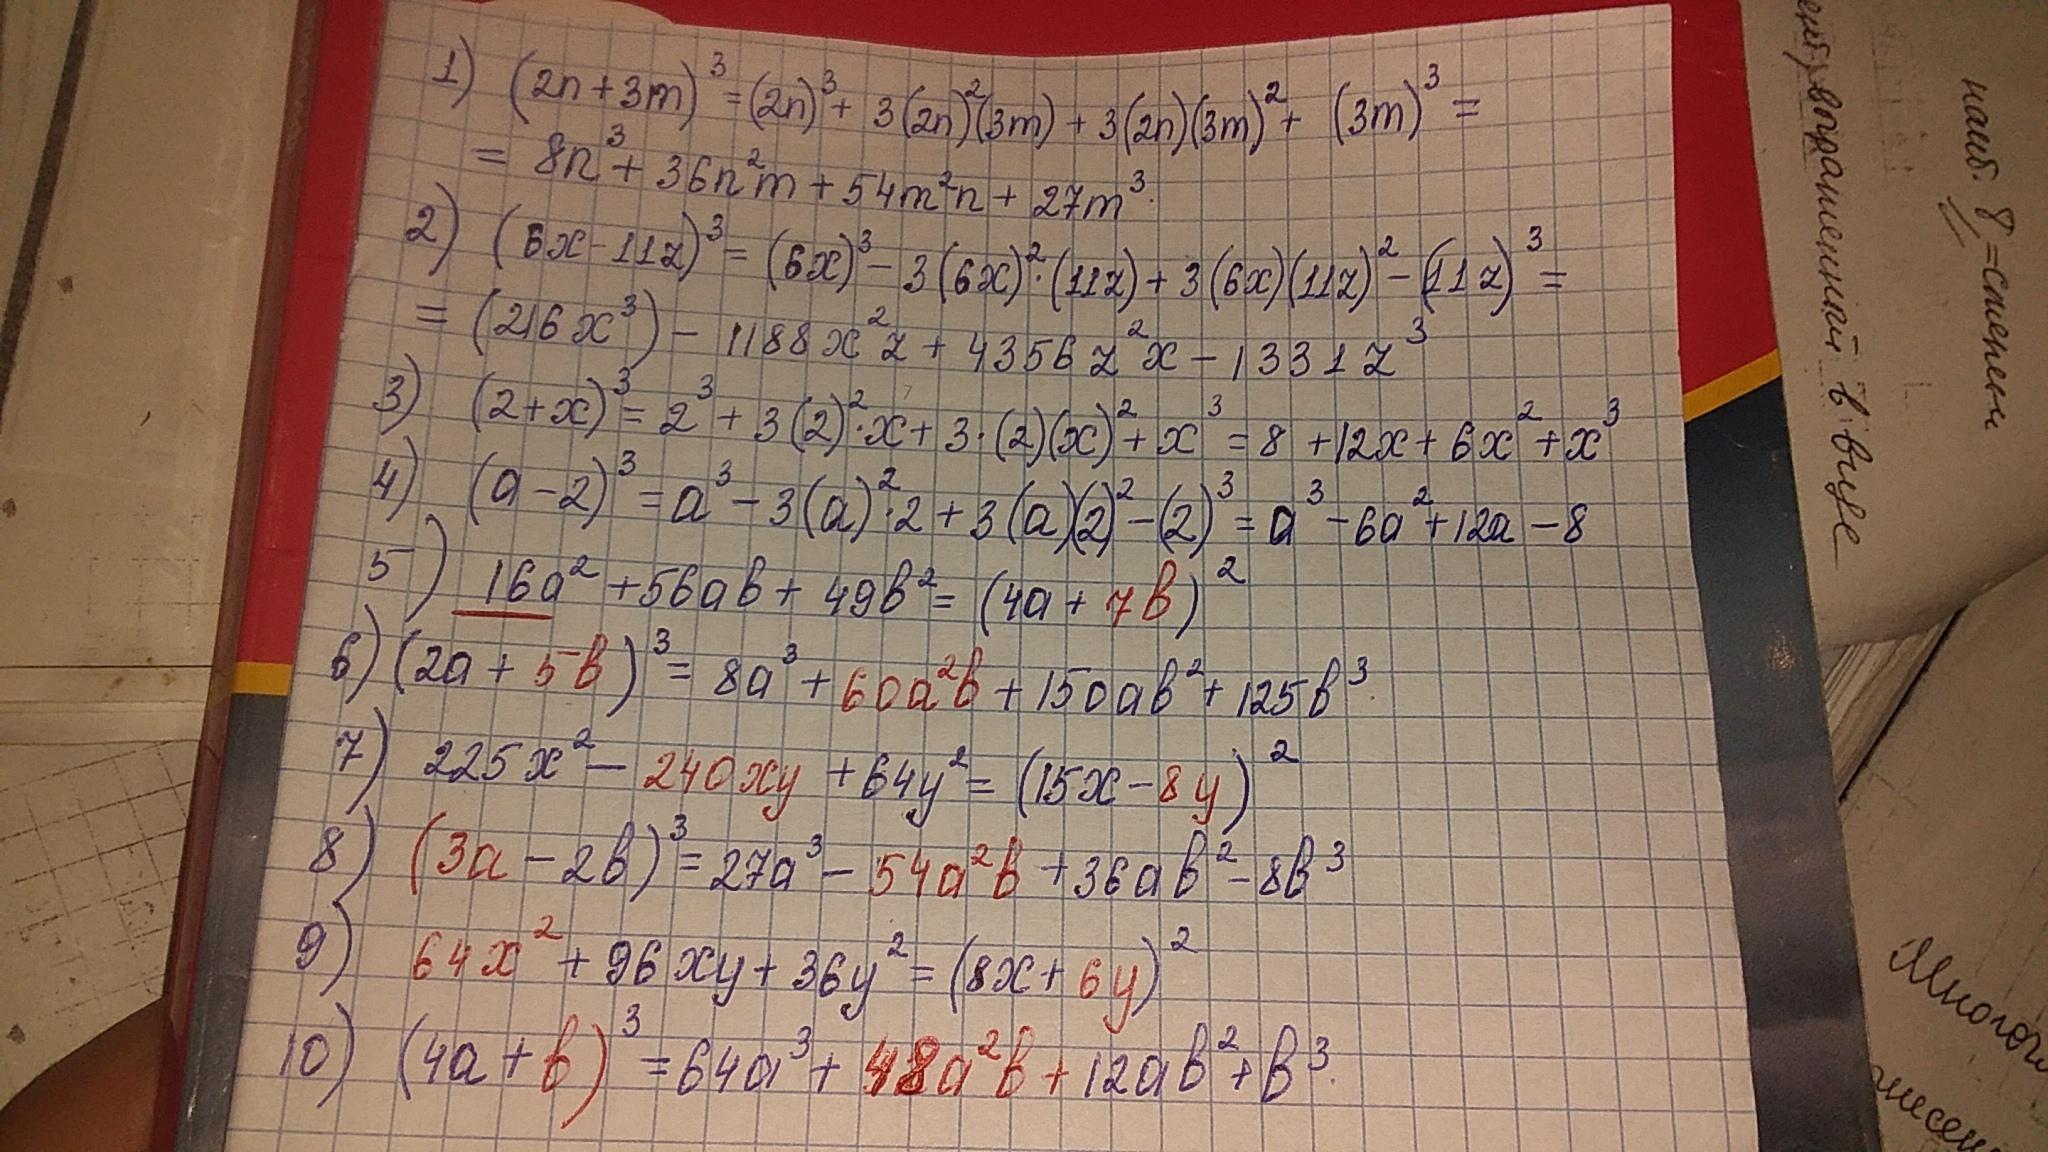 1) (2n+3m)³=(2n)³+ 3(2n)²(3m)+3(2n)(3m)²+ (3m)³=
= 8n³+36n²m+54m²n+27m³.
2) (6x-11z)³=(6x)³-3(6x)²·(11z)+3(6x)(11z)²-(11z)³=
=(216x³)-1188x²z+4356z²x-1331z³
3) (2+x)³=2³+3(2)²·x+3·(2)(x)²+x³=8+12x+6x²+x³
4) (a-2)³=a³-3(a)²·2+3(a)(2)²-(2)³=a³-6a²+12a-8
5) 16a²+56ab+49b²=(4a+7b)²
6) (2a+5b)³=8a³+60a²b+150ab²+125b³.
7) 225x²-240xy+64y²=(15x-8y)²
8) (3a-2b)³=27a³-54a²b+36ab²-8b³
9) 64x²+96xy+36y²=(8x+6y)²
10) (4a+b)³=64a³+48a²b+12ab²+b³.
наиб. 8=степени
выражений в виде
Многоч